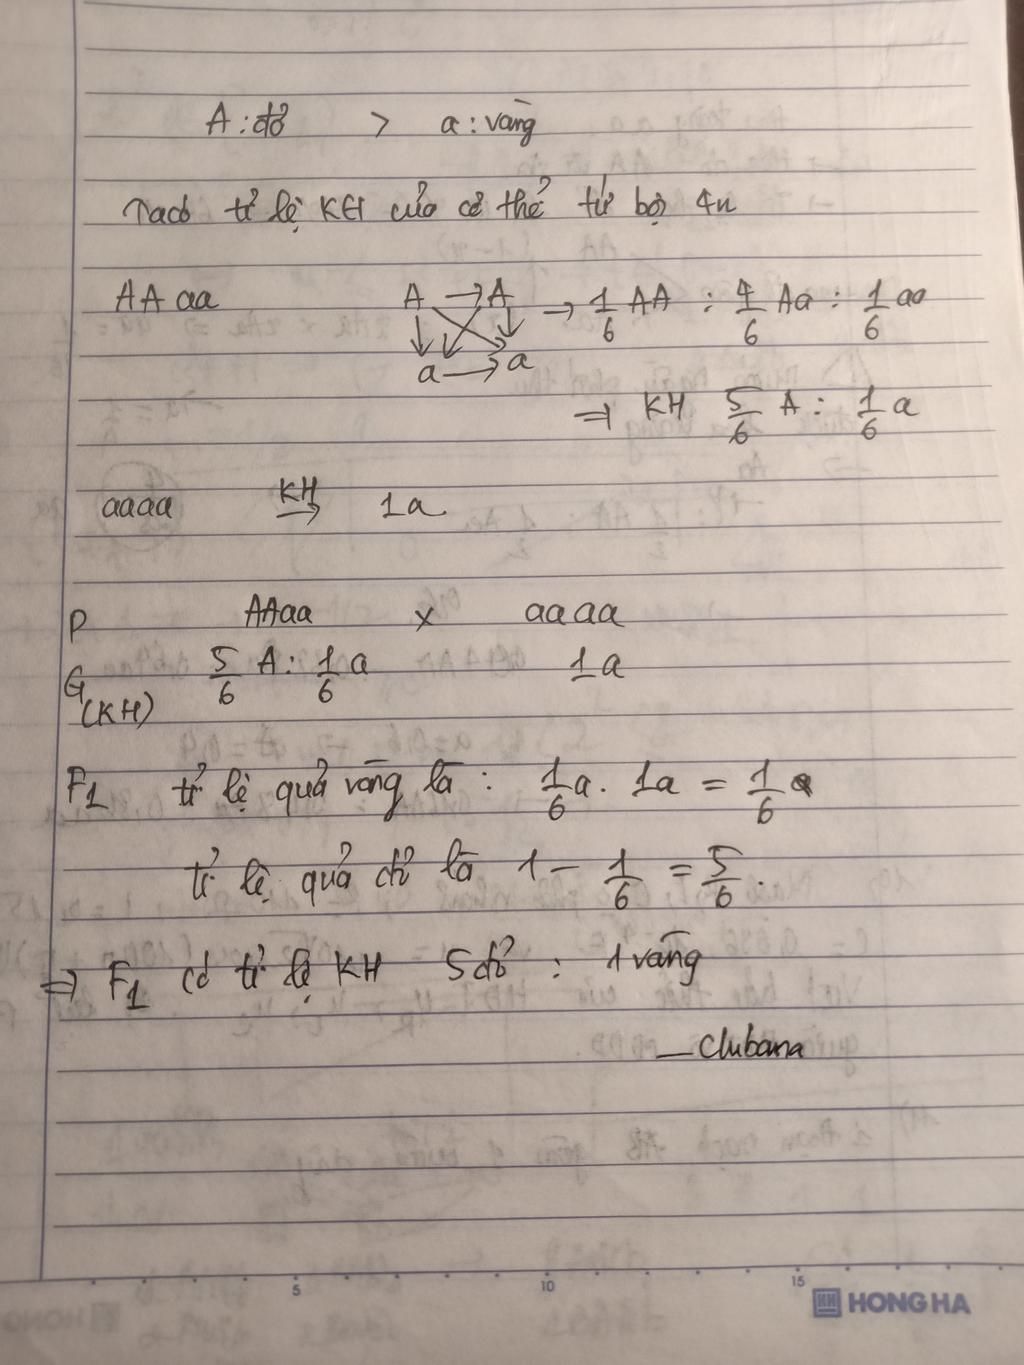 A : đỏ > a : vàng
Ta có tỉ lệ KH của cơ thể tứ bội 4n
AAaa A → A → 1/6 AA : 4/6 Aa : 1/6 aa
a → a
⇒ KH 5/6 A : 1/6 a
aaaa KH → 1a
P AAaa x aaaa
G (KH) 5/6 A : 1/6 a 1a
F1 tỉ lệ quả vàng là : 1/6 a . 1a = 1/6
tỉ lệ quả đỏ là 1 - 1/6 = 5/6.
⇒ F1 có tỉ lệ KH 5 đỏ : 1 vàng
— Clubana
5 10 15
HONG HA